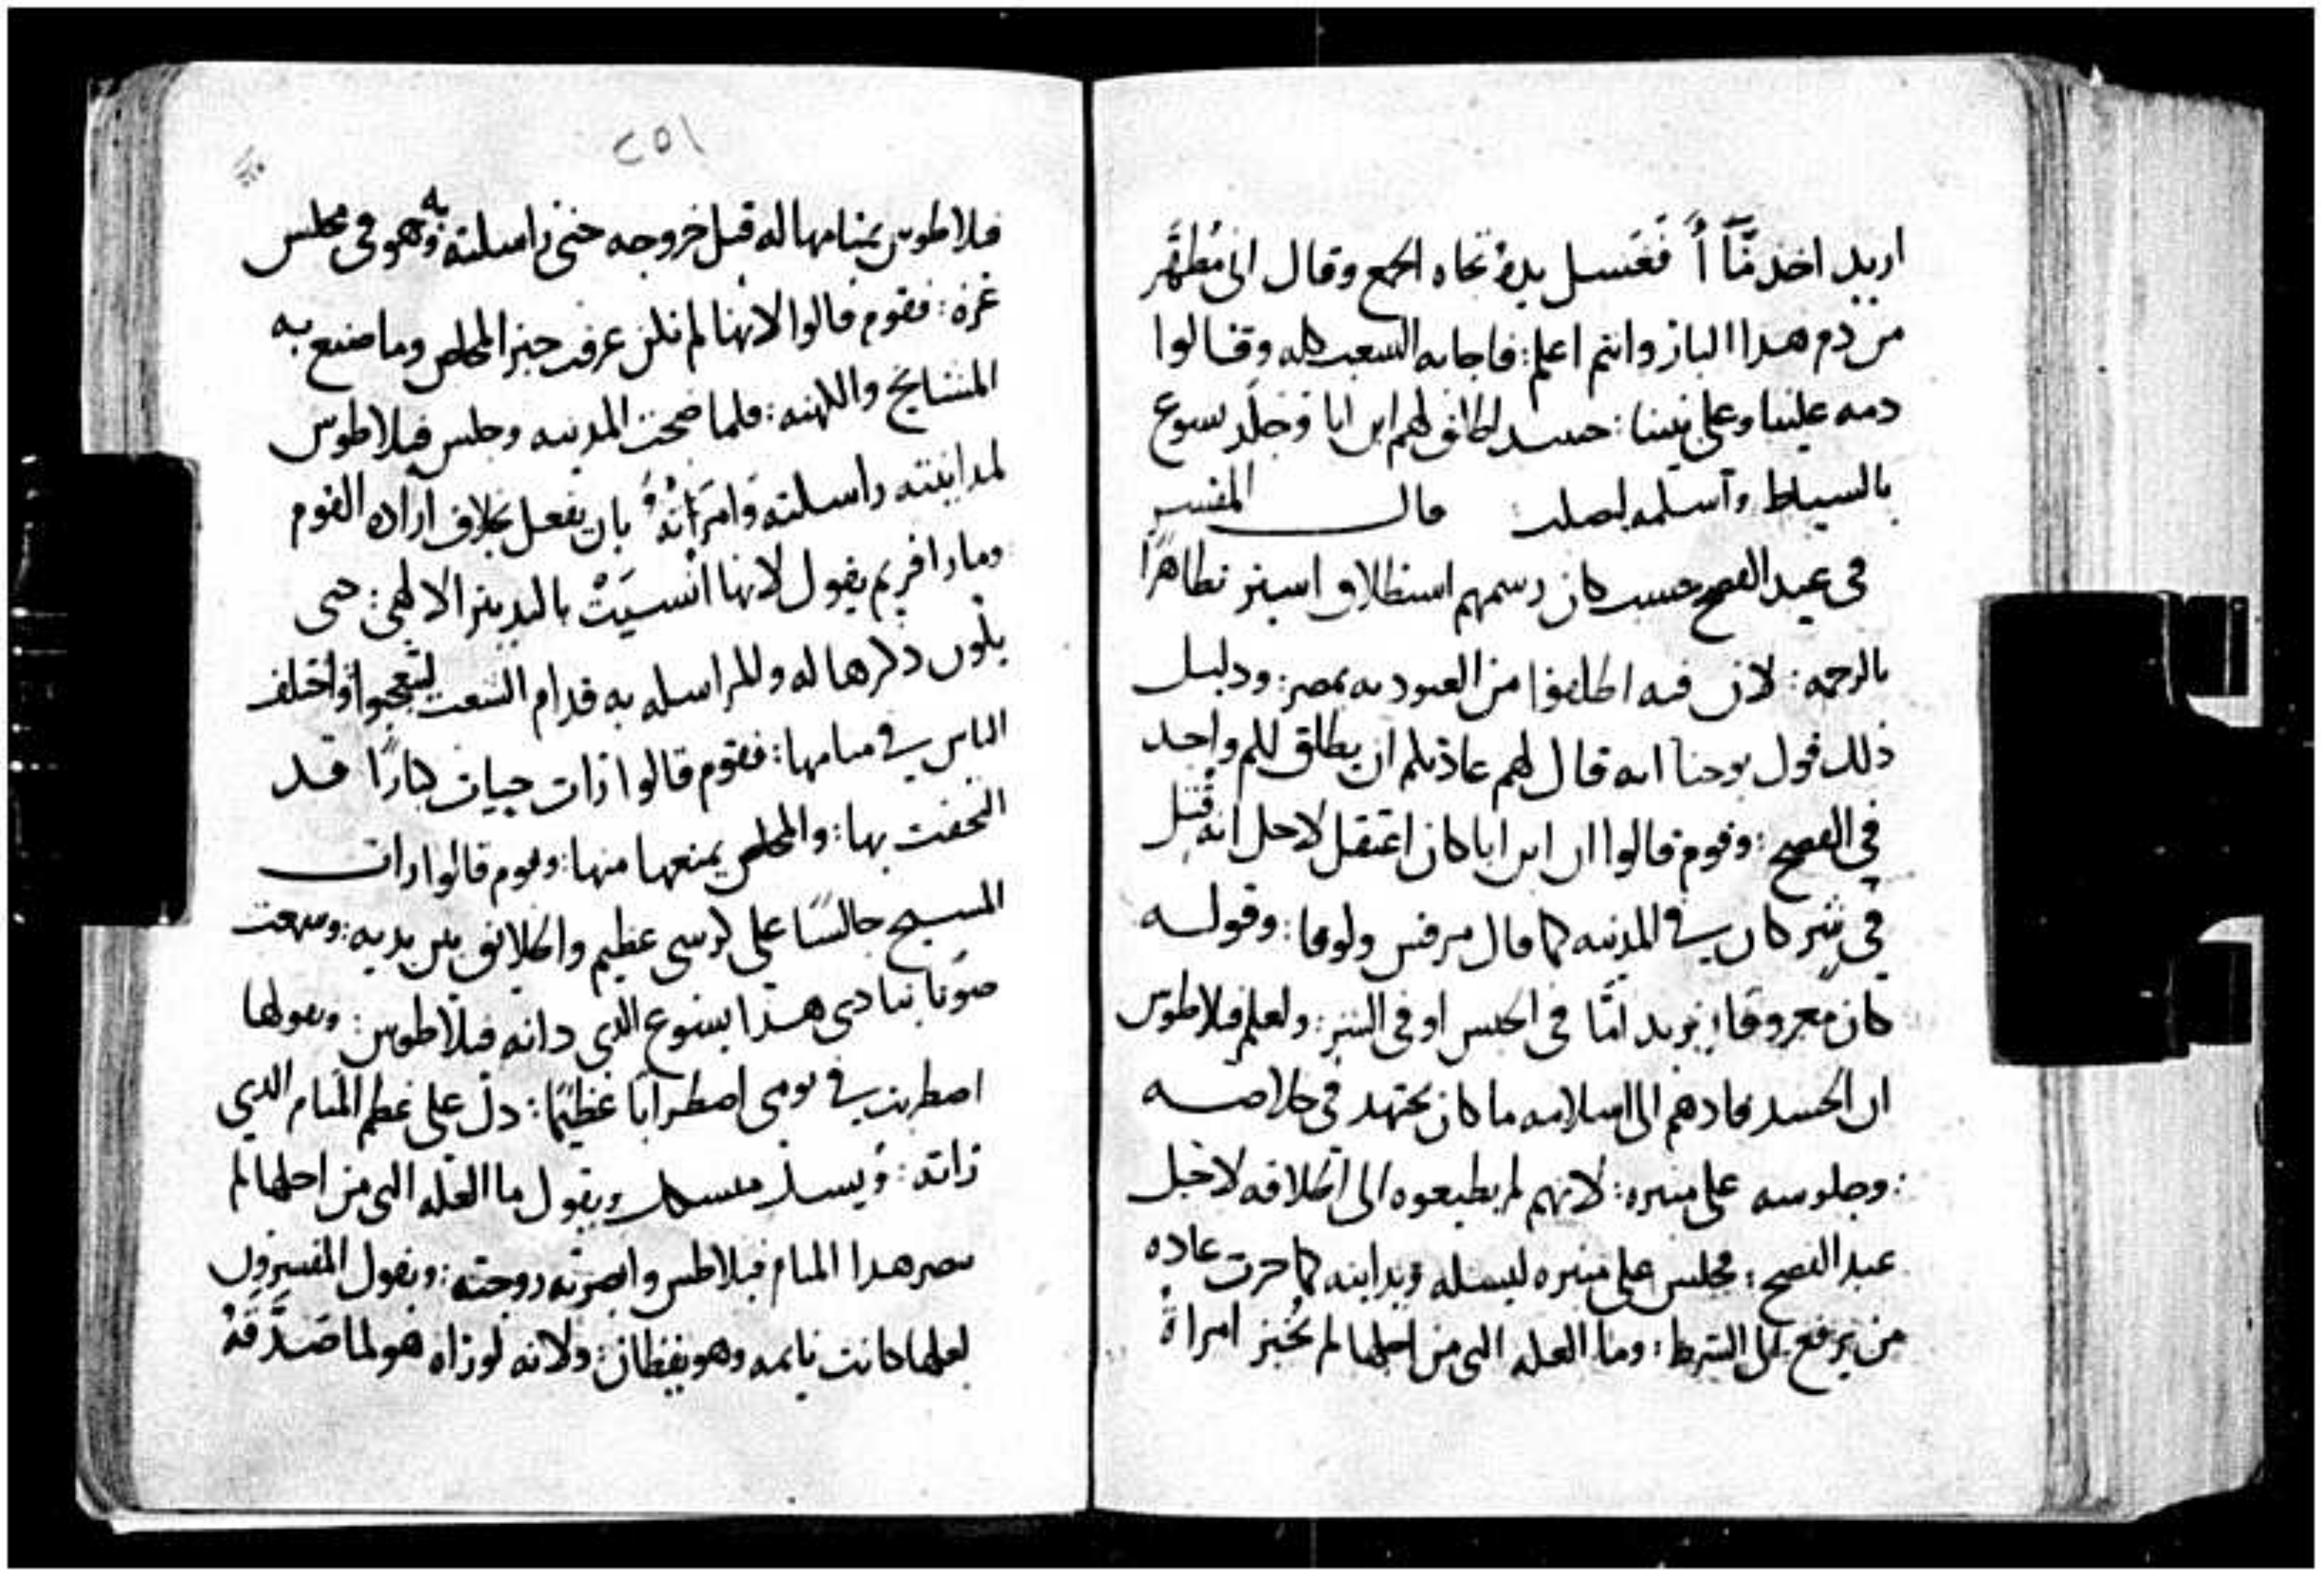 اريد اخد مّآ أ فغسل يديه تجاه الجمع وقال اني مُطهَّر
من دم هدا البار وانتم اعلم: فاجابه الشعب كله وقالوا
دمه علينا وعلى بنينا: حينيد اطلق لهم ابن ابا وجلد يسوع
بالسياط واسلمه ليصلب قال المفسر
في عيد الفصح حسب كان رسمهم استطلاق اسير تطاهرًا
بالرحمه: لان فيه اطلقوا من العبوديه بمصر: ودليل
ذلك قول يوحنا انه قال لهم عادتكم ان يطلق لكم واحد
في الفصح: وقوم قالوا ان ابن ابا كان اعتقل لاجل انه قتل
في شر كان في المدينه كما قال مرقس ولوقا: وقوله
كان معروفا: يريد امّا في الحبس او في الشر: ولعلم فيلاطوس
ان الحسد قادهم الى اسلامه ما كان يجتهد في خلاصه
: وجلوسه على منبره: لانهم لم يطيعوه الى اطلاقه لاجل
عيد الفصح: فجلس على منبره ليسله ويداينه كما جرت عاده
من يرفع الشرط: وما العله التي من اجلها لم تخبر امراة
٢٥١
فيلاطوس بمنامها له قبل خروجه حتى راسلته به وهو في مجلس
غزه: فقوم قالوا لانها لم تكن عرفت خبر المخلص وما صنع به
المشايخ والكهنه: فلما ضجت المدينه وجلس فيلاطوس
لمداينته راسلته وامرته بان يفعل بخلاف اراده القوم
ومار افريم يقول لانها انسيَتْ بالتدبير الالهي: حتى
يكون ذكرها له وللمراسله به قدام الشعب ليتعجبوا واختلف
الناس في منامها: فقوم قالوا رات حيات كبارًا قد
التحفت بها: والمخلص يمنعها منها: وقوم قالوا رات
المسيح جالسًا على كرسي عظيم والخلايق بين يديه: وسمعت
صوتا ينادي هذا يسوع الذي دانه فيلاطوس: وقولها
اضطربت في نومي اضطرابًا عظيمًا: دل على عظم المنام الذي
راته: ويسل ويقول ما العله التي من اجلها لم
يبصر هدا المنام فيلاطس وابصرته زوجته: ويقول المفسرون
لعلها كانت نايمه وهو يقظان: ولانه لو راه هو لما صَدَّقهُ